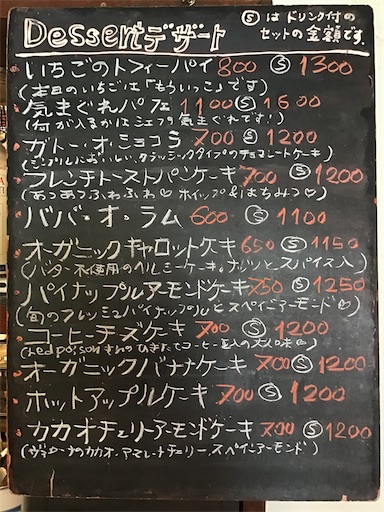 Dessertデザート
Ⓢはドリンク付の
セットの金額です。
いちごのトフィーパイ 800 Ⓢ 1300
(本日のいちごは「もういっこ」です)
気まぐれパフェ 1100 Ⓢ 1600
(何が入るかはシェフの気まぐれです!)
ガトー・オ・ショコラ 700 Ⓢ 1200
(シンプルにおいしい、クラッシックタイプのチョコレートケーキ)
フレンチトーストパンケーキ 700 Ⓢ 1200
(あつあつふわふわ♡ホイップ&はちみつ♡)
ババ・オ・ラム 600 Ⓢ 1100
オーガニックキャロットケーキ 650 Ⓢ 1150
(バター不使用のヘルシーケーキ。ナッツとスパイス入)
パイナップルアーモンドケーキ 750 Ⓢ 1250
(旬のフレッシュパイナップルとスペインアーモンド♡)
コーヒーチーズケーキ 700 Ⓢ 1200
(Redpoisonさんのひきたてコーヒー豆入の大人味♡)
オーガニックバナナケーキ 700 Ⓢ 1200
ホットアップルケーキ 700 Ⓢ 1200
カカオチェリーアーモンドケーキ 700 Ⓢ 1200
(ヴァローナのカカオ・アマレーナチェリー・スペインアーモンド)